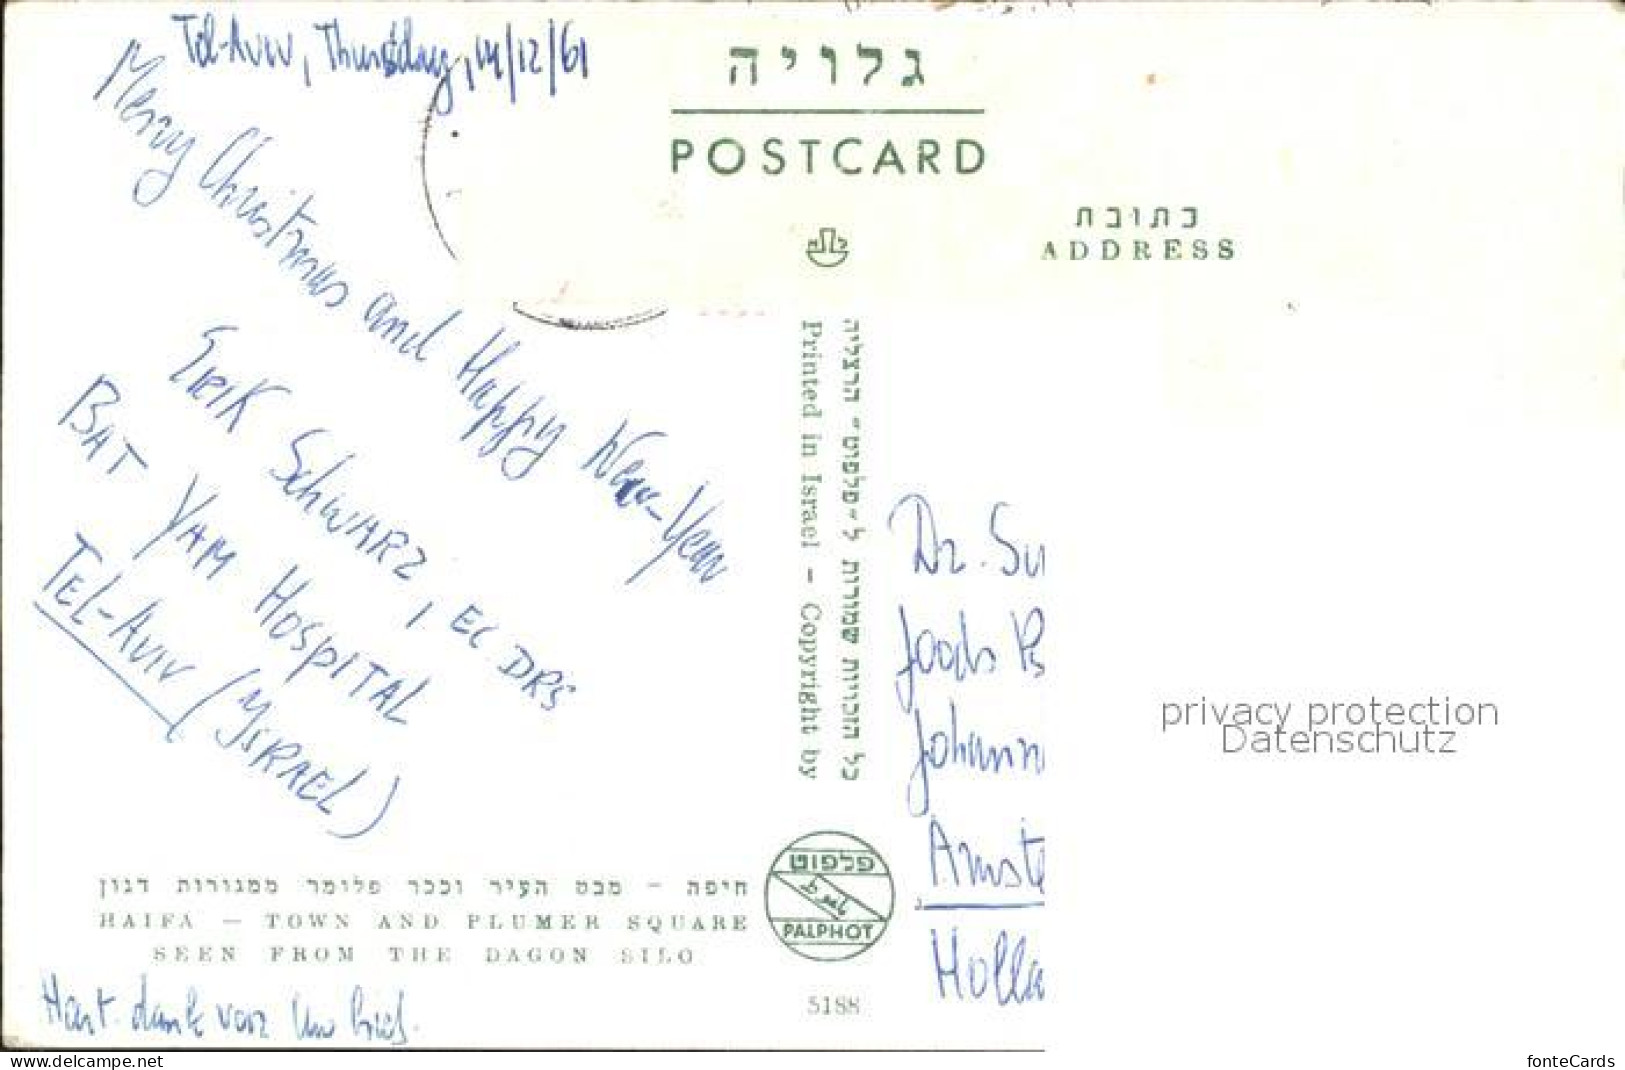 Tel-Aviv, Thursday, 14/12/61
Merry Christmas and Happy New-Year
Erik Schwarz, EC. DRS
BAT YAM HOSPITAL
TEL-AVIV (YSRAEL)
גלויה
POSTCARD
כתובת
ADDRESS
כל הזכויות שמורות ל״פלפוט״ הרצליה
Printed in Israel – Copyright by
פלפוט
PALPHOT
חיפה – מבט העיר וככר פלומר ממגורות דגון
HAIFA – TOWN AND PLUMER SQUARE
SEEN FROM THE DAGON SILO
5188
Hart. dank voor Uw brief.
Dr. Su
Joods
Johann
Amste
Holla
privacy protection
Datenschutz
https://www.delcampe.net
fonteCards